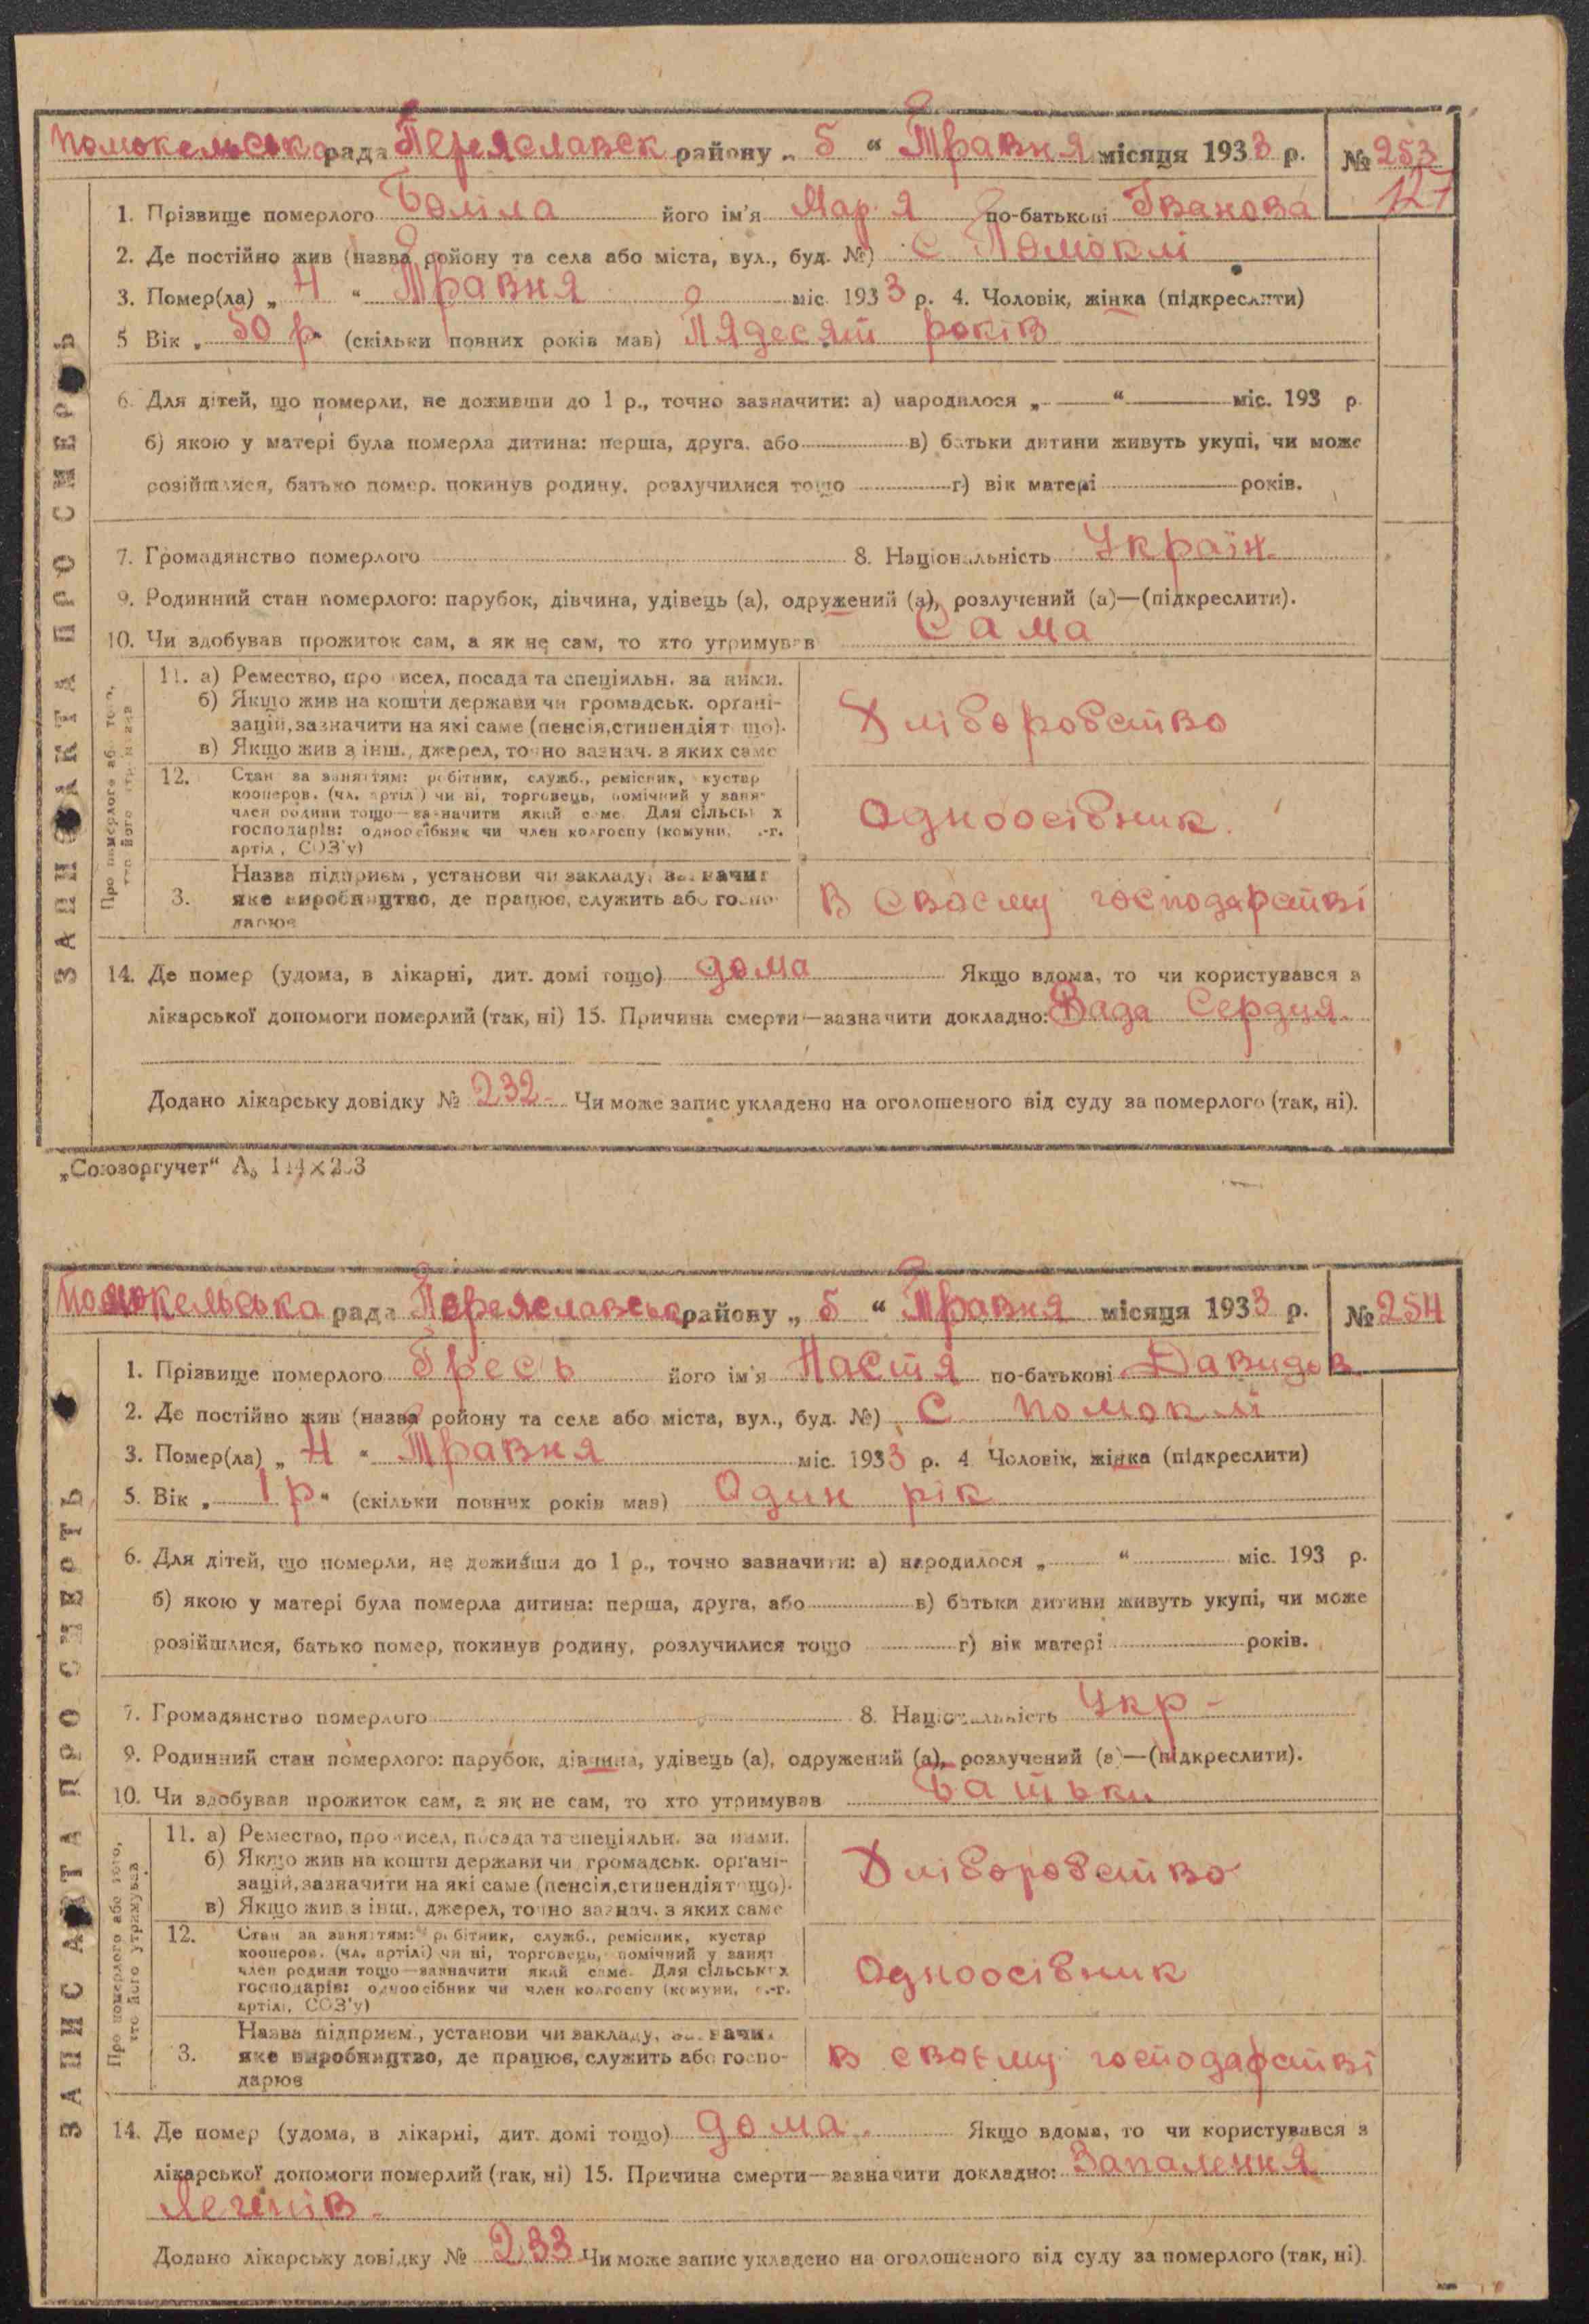 Помокельська рада Переяславск району „ 5 “ Травня місяця 1933 р. № 253
127
1. Прізвище померлого Боліла його ім'я Марія по-батькові Іванова
2. Де постійно жив (назва ройону та села або міста, вул., буд. №) С Помоклі
3. Помер(ла) „ 4 “ Травня міс. 1933 р. 4. Чоловік, жінка (підкреслити)
5 Вік „ 50 р “ (скільки повних років мав) Пядесят років
6. Для дітей, що померли, не доживши до 1 р., точно зазначити: а) народилося „ “ міс. 193 р.
б) якою у матері була померла дитина: перша, друга, або в) батьки дитини живуть укупі, чи може
розійшлися, батько помер, покинув родину, розлучилися тощо г) вік матері років.
7. Громадянство померлого 8. Національність Україн.
9. Родинний стан померлого: парубок, дівчина, удівець (а), одружений (а), розлучений (а)—(підкреслити).
10. Чи здобував прожиток сам, а як не сам, то хто утримував Сама
ЗАПИС АКТА ПРО СМЕРТЬ
Про померлого або того, хто його утримував
11. а) Ремество, промисел, посада та специяльн. за ними.
б) Якщо жив на кошти держави чи громадськ. органі-
зацій, зазначити на які саме (пенсія, стипендіят що).
в) Якщо жив з інш., джерел, точно зазнач. з яких саме
Хліборобство
12. Стан за заняттям: робітник, служб., ремісник, кустар
кооперов. (чл. артілі) чи ні, торговець, помічний у занят
член родини тощо—зазначити який саме. Для сільських
господарів: одноосібник чи член колгоспу (комуни, с.-г.
артіл, СОЗ'у)
Одноосібник.
3. Назва підприєм., установи чи закладу, зазначит
яке виробництво, де працює, служить або госпо-
дарює
в своєму господарстві
14. Де помер (удома, в лікарні, дит. домі тощо) дома Якщо вдома, то чи користувався з
лікарської допомоги померлий (так, ні) 15. Причина смерти—зазначити докладно: Вада Серdця.
Додано лікарську довідку № 232 Чи може запис укладено на оголошеного від суду за померлого (так, ні).
„Союзоргучет“
Помокельська рада Переяславськ району „ 5 “ Травня місяця 1933 р. № 254
1. Прізвище померлого Гресь його ім'я Настя по-батькові Давидов
2. Де постійно жив (назва ройону та села або міста, вул., буд. №) С Помоклі
3. Помер(ла) „ 4 “ Травня міс. 1933 р. 4 Чоловік, жінка (підкреслити)
5. Вік „ 1 р “ (скільки повних років мав) Один рік
6. Для дітей, що померли, не доживши до 1 р., точно зазначити: а) народилося „ “ міс. 193 р.
б) якою у матері була померла дитина: перша, друга, або в) батьки дитини живуть укупі, чи може
розійшлися, батько помер, покинув родину, розлучилися тощо г) вік матері років.
7. Громадянство померлого 8. Національність Укр -
9. Родинний стан померлого: парубок, дівчина, удівець (а), одружений (а), розлучений (а)—(підкреслити).
10. Чи здобував прожиток сам, а як не сам, то хто утримував Батьки
ЗАПИС АКТА ПРО СМЕРТЬ
Про померлого або того, хто його утримував
11. а) Ремество, промисел, посада та специяльн. за ними.
б) Якщо жив на кошти держави чи громадськ. органі-
зацій, зазначити на які саме (пенсія, стипендіят що).
в) Якщо жив з інш., джерел, точно зазнач. з яких саме
Хліборобство
12. Стан за заняттям: робітник, служб., ремісник, кустар
кооперов. (чл. артілі) чи ні, торговець, помічний у занят
член родини тощо—зазначити який саме. Для сільських
господарів: одноосібник чи член колгоспу (комуни, с.-г.
артілі, СОЗ'у)
Одноосібник
3. Назва підприєм., установи чи закладу, зазначи
яке виробництво, де працює, служить або госпо-
дарює
в своєму господарстві
14. Де помер (удома, в лікарні, дит. домі тощо) дома. Якщо вдома, то чи користувався з
лікарської допомоги померлий (так, ні) 15. Причина смерти—зазначити докладно: Запалення
Легенів.
Додано лікарську довідку № 233 Чи може запис укладено на оголошеного від суду за померлого (так, ні).